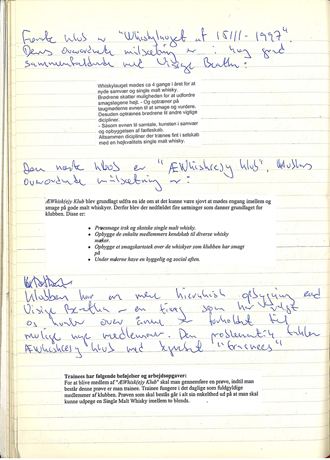 Første klub er "Whiskylauget af 18/11-1997".
Dens overordnede målsætning er i høj grad
sammenfaldende med Visige Brødre:
Whiskylauget mødes ca 4 gange i året for at
nyde samvær og single malt whisky.
Brødrene skaber muligheden for at udfordre
smagsløgene højt. - Og optræner på
laugmøderne evnen til at smage og vurdere.
Desuden optrænes brødrene til andre vigtige
dicipliner.
- Såsom evnen til samtale, kunsten i samvær
og opbyggelsen af fællesskab.
Altsammen dicipliner der trænes fint i selskab
med en højkvalitets single malt whisky.
Den næste klub er "ÆWhisk(e)y klub",
overordnede målsætning er:
ÆWhisk(e)y Klub blev grundlagt udfra en ide om at det kunne være sjovt at mødes engang imellem og
smage på gode malt whiskyer. Derfor blev der nedfældet fire sætninger som danner grundlaget for
klubben. Disse er:
• Prøvesmage irsk og skotske single malt whisky.
• Opbygge de enkelte medlemmers kendskab til diverse whisky
mærker.
• Opbygge et smagskartotek over de whiskyer som klubben har smagt
på
• Under møderne have en hyggelig og social aften.
Klubben har en mere hierarkisk opbygning end
Visige Brødre - en ting som har
og over årene er forholdet til
mulige nye medlemmer. Den
ÆWhisk(e)y klub med "trainees"
Trainees har følgende beføjelser og arbejdsopgaver:
For at blive medlem af "ÆWhisk(e)y Klub" skal man gennemføre en prøve, indtil man
består denne prøve er man trainee. Trainee fungere i det daglige som fuldgyldige
medlemmer af klubben. Prøven som skal bestås går i alt sin enkelthed ud på at man skal
kunne udpege en Single Malt Whisky imellem to blends.